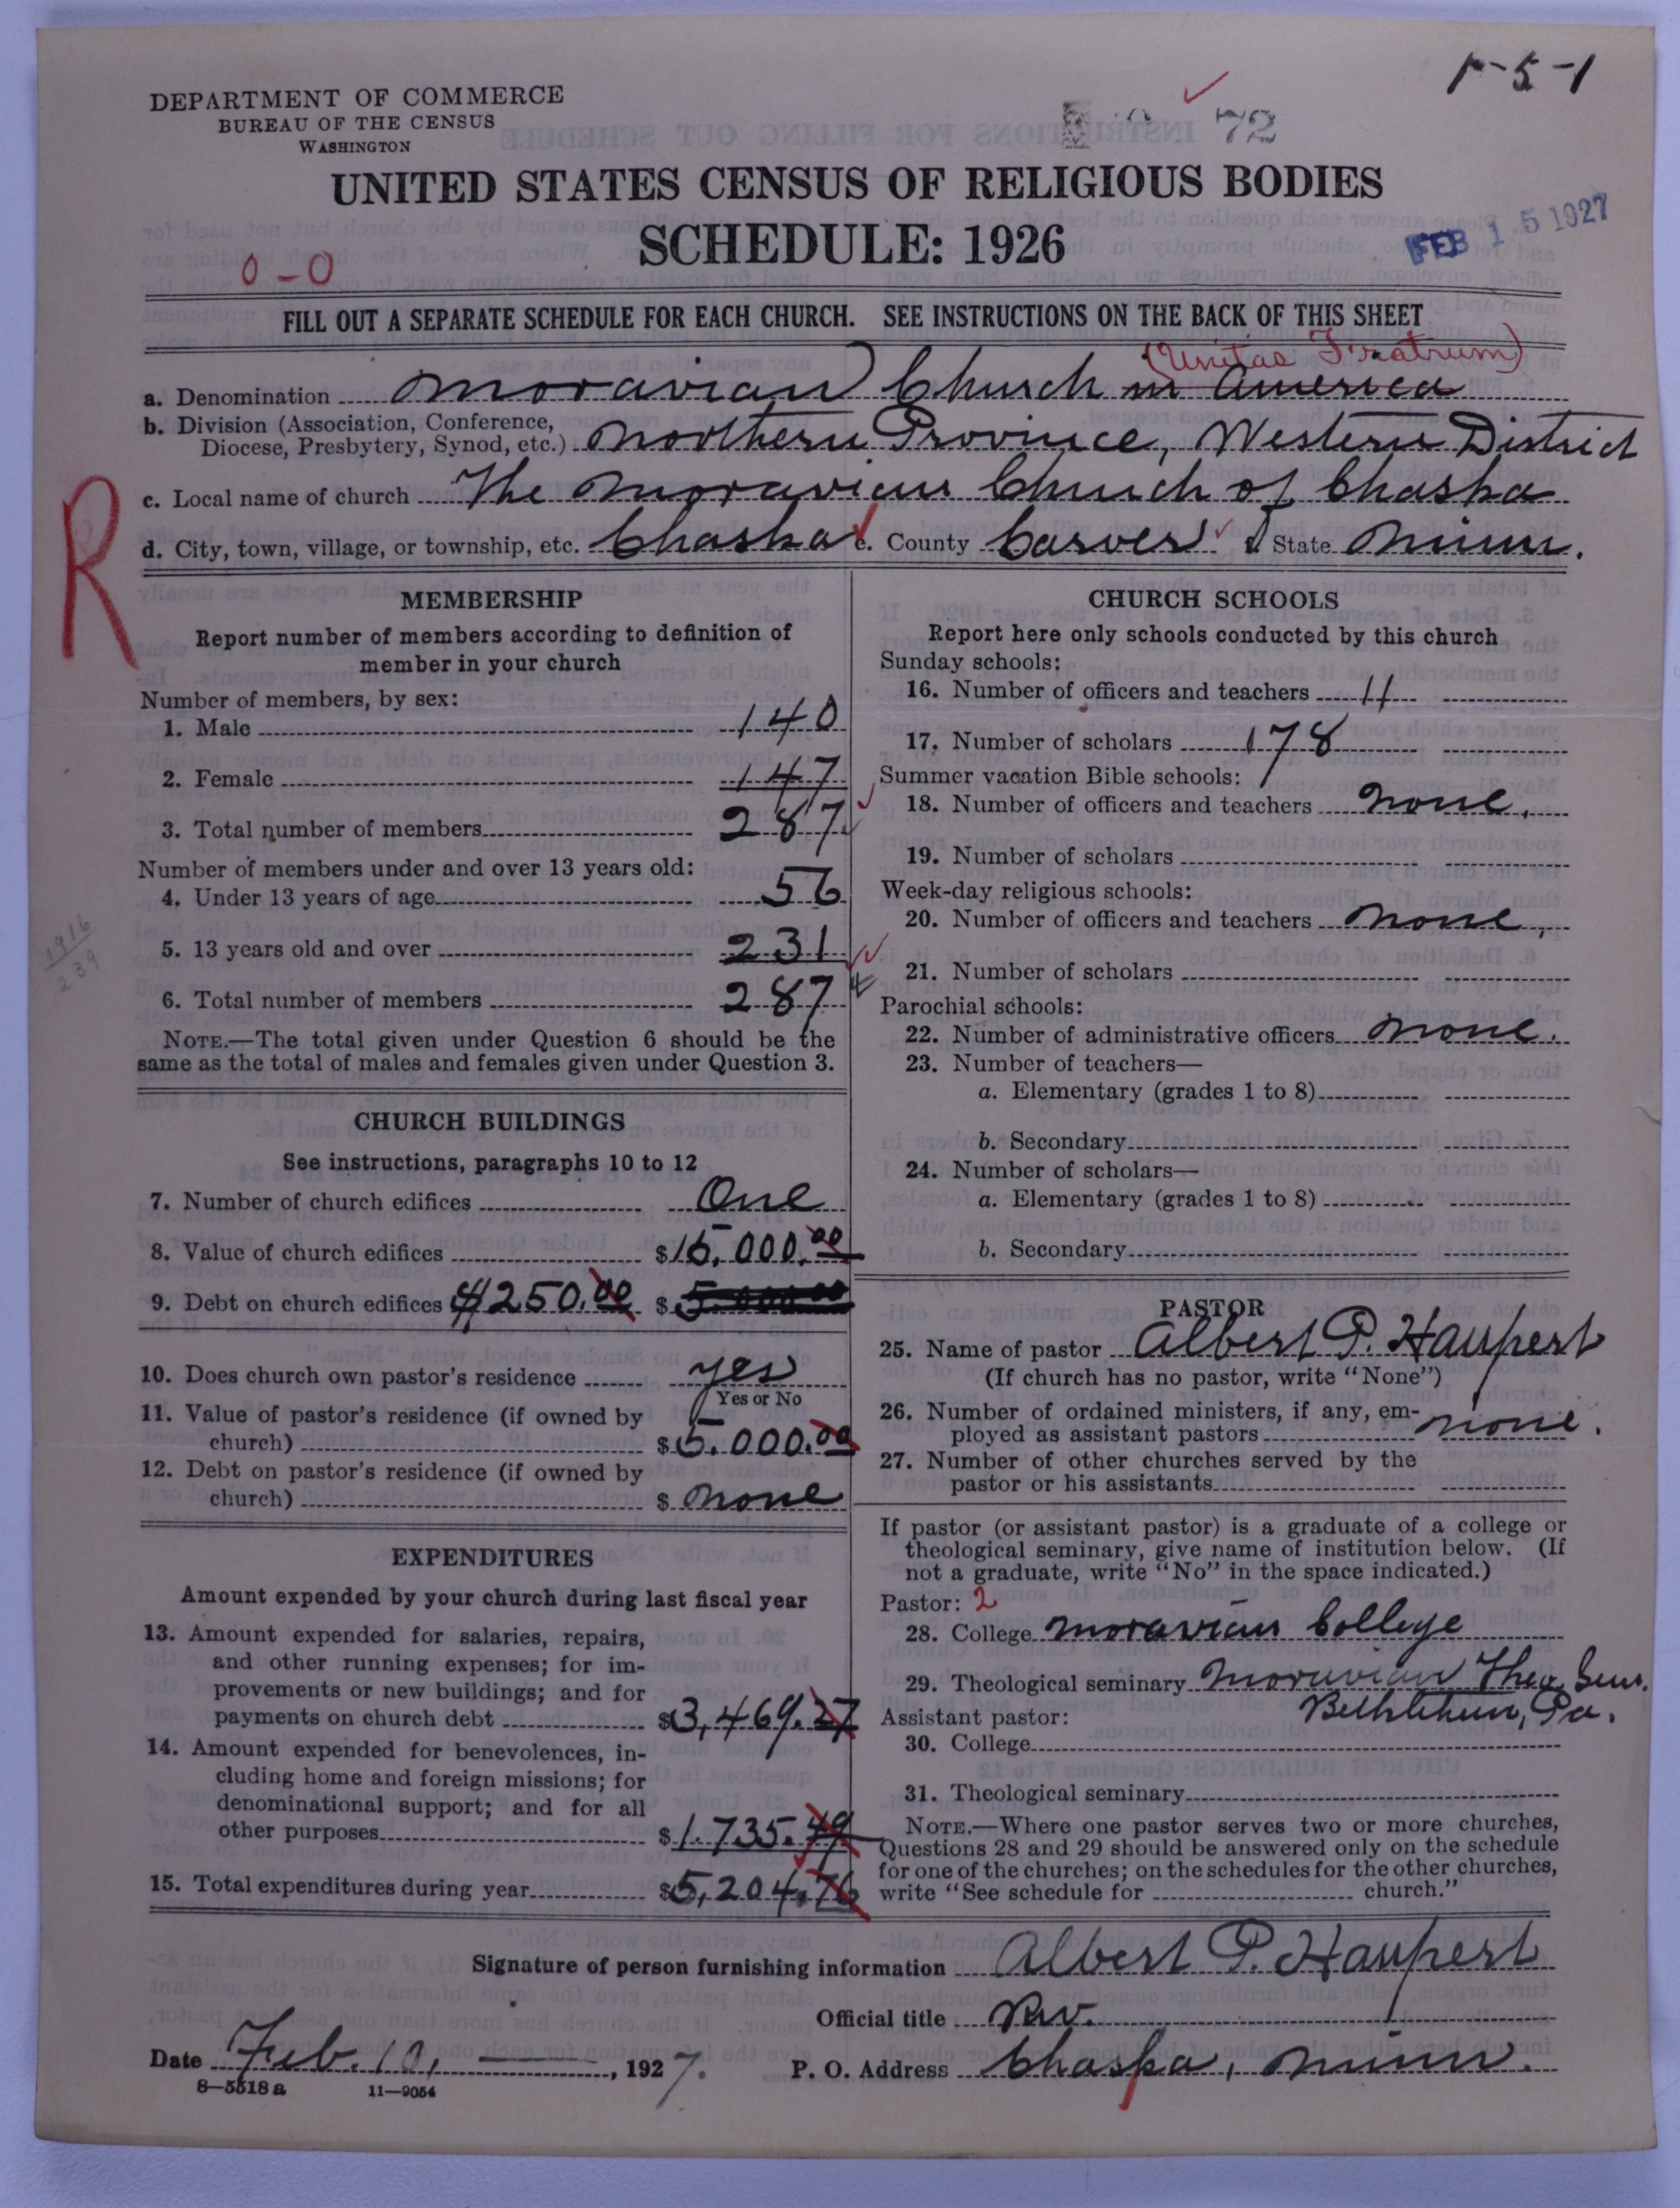 1-5-1
DEPARTMENT OF COMMERCE
BUREAU OF THE CENSUS
WASHINGTON
72
UNITED STATES CENSUS OF RELIGIOUS BODIES
SCHEDULE: 1926
FEB 15 1927
0-0
FILL OUT A SEPARATE SCHEDULE FOR EACH CHURCH. SEE INSTRUCTIONS ON THE BACK OF THIS SHEET
(Unitas Fratrum)
a. Denomination Moravian Church in America
b. Division (Association, Conference,
Diocese, Presbytery, Synod, etc.) Northern Province, Western District
R
c. Local name of church The Moravian Church of Chaska
d. City, town, village, or township, etc. Chaska e. County Carver State Minn.
MEMBERSHIP
Report number of members according to definition of
member in your church
Number of members, by sex:
1. Male 140
2. Female 147
3. Total number of members 287
Number of members under and over 13 years old:
4. Under 13 years of age 56
1916
239
5. 13 years old and over 231
6. Total number of members 287
NOTE.—The total given under Question 6 should be the
same as the total of males and females given under Question 3.
CHURCH BUILDINGS
See instructions, paragraphs 10 to 12
7. Number of church edifices One
8. Value of church edifices $15,000.00
9. Debt on church edifices $1250.00 $5000.00
10. Does church own pastor's residence yes
Yes or No
11. Value of pastor's residence (if owned by
church) $5,000.00
12. Debt on pastor's residence (if owned by
church) $ None
EXPENDITURES
Amount expended by your church during last fiscal year
13. Amount expended for salaries, repairs,
and other running expenses; for im-
provements or new buildings; and for
payments on church debt $3,469.27
14. Amount expended for benevolences, in-
cluding home and foreign missions; for
denominational support; and for all
other purposes $1.735.49
15. Total expenditures during year $5,204.76
CHURCH SCHOOLS
Report here only schools conducted by this church
Sunday schools:
16. Number of officers and teachers 11
17. Number of scholars 178
Summer vacation Bible schools:
18. Number of officers and teachers None.
19. Number of scholars
Week-day religious schools:
20. Number of officers and teachers None,
21. Number of scholars
Parochial schools:
22. Number of administrative officers None.
23. Number of teachers—
a. Elementary (grades 1 to 8)
b. Secondary
24. Number of scholars—
a. Elementary (grades 1 to 8)
b. Secondary
PASTOR
25. Name of pastor Albert P. Haupert
(If church has no pastor, write "None")
26. Number of ordained ministers, if any, em-
ployed as assistant pastors None.
27. Number of other churches served by the
pastor or his assistants
If pastor (or assistant pastor) is a graduate of a college or
theological seminary, give name of institution below. (If
not a graduate, write "No" in the space indicated.)
Pastor: 2
28. College Moravian College
29. Theological seminary Moravian Theo. Sem.
Bethlehem, Pa.
Assistant pastor:
30. College
31. Theological seminary
NOTE.—Where one pastor serves two or more churches,
Questions 28 and 29 should be answered only on the schedule
for one of the churches; on the schedules for the other churches,
write "See schedule for church."
Signature of person furnishing information Albert P. Haupert
Official title Rev.
Date Feb. 10, 1927. P. O. Address Chaska, Minn.
8—5518a 11—9054